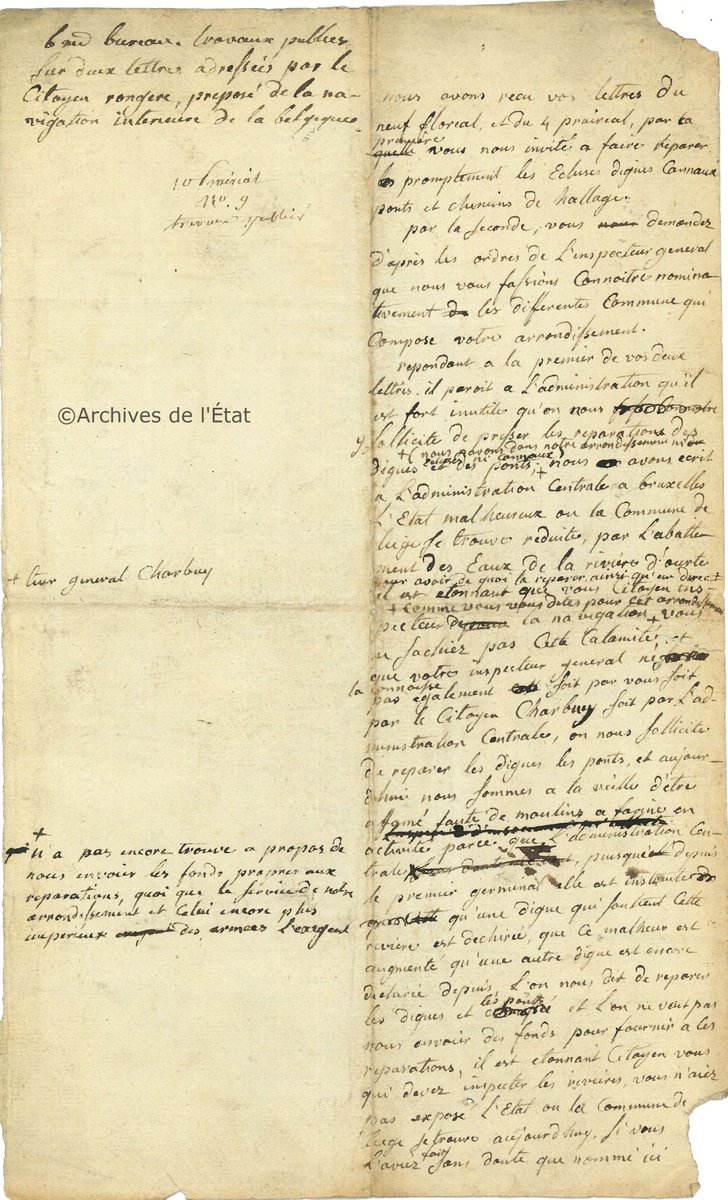 6 me bureau. travaux publics
sur deux lettres adressées par le
Citoyen rongere, preposé de la na-
vigation interieure de la belgique
10 Prairial
No. 9
travaux publics
©Archives de l'État
+ teur general Charbuy
+
il n'a pas encore trouvé a propos de
nous envoier les fonds propres aux
reparations, quoi que le service de notre
arrondissement et celui encore plus
superieux des armées l'exegent
nous avons recu vos lettres du
neuf floreal, et du 4 prairéal, par la
premiére
vous nous invité a faire reparer
promptement les Ecluses digues Cannaux
ponts et chemins de hallage.
par la seconde, vous nous demandez
d'apres les ordres de L'inspecteur general
que nous vous fassions Connoitre nomina-
tivement les differentes Commune qui
Compose votre arrondissement.
repondant a la premier de vos deux
lettres. il paroit a L'administration qu'il
est fort inutile qu'on nous
sollicite de presser les reparations des
+ (nous n'avons dans notre arrondissement ni
ecluses ni Cannaux)
digues et des ponts, + nous avons ecrit
a L'administration Centrale a bruxelles
L'Etat malheureux ou la Commune de
liege se trouve reduite, par L'abatte-
ment des Eaux de la riviere d'ourte
pour avoir de quoi la reparer ainsi qu'au direc +
il est etonnant que vous Citoyen ins-
+ comme vous vous dites pour cet arrondissement
pecteur de la navigation + vous
ne sachiez pas Cette Calamité, et
que votre inspecteur general
la Connoisse
pas également soit par vous soit
par le Citoyen Charbuy soit par L'ad-
ministration Centrale, on nous sollicite
de reparer les digues les ponts, et aujour-
dhui nous sommes a la veille d'être
affamé faute de moulins a farine en
activité parce que L'administration Cen-
trale puisque depuis
le premier germinal elle est instruite
qu'une digue qui soutient Cette
riviere est dechirée, que ce malheur est
augmenté qu'une autre digue est encore
dechirée depuis, L'on nous dit de reparer
les ponts
les digues et et L'on ne veut pas
nous envoier des fonds pour fournir a les
reparations, il est etonnant Citoyen vous
qui devez inspecter les riviéres, vous n'aiez
pas exposé L'Etat ou la Commune de
liege se trouve aujourdhuy. Si vous
L'aviez fait sans doute que nommé ici